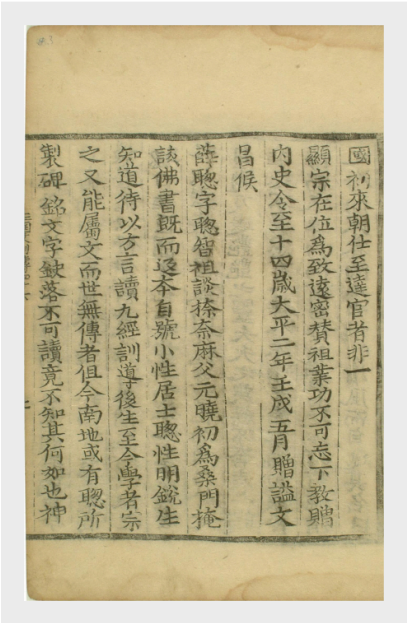 國初來朝仕至達官者非一
顯宗在位為致遠密賛祖業功不可忘下敎贈
内史令至十四歳大平二年壬戌五月贈謚文
昌候
薛聰字聰智祖談捺奈麻父元曉初為桑門掩
該佛書既而返夲自號小性居士聰性明銳生
知道待以方言讀九經訓導後生至今學者宗
之又能屬文而世無傳者但今南地或有聰所
製碑銘文字缺落不可讀竟不知其何如也神